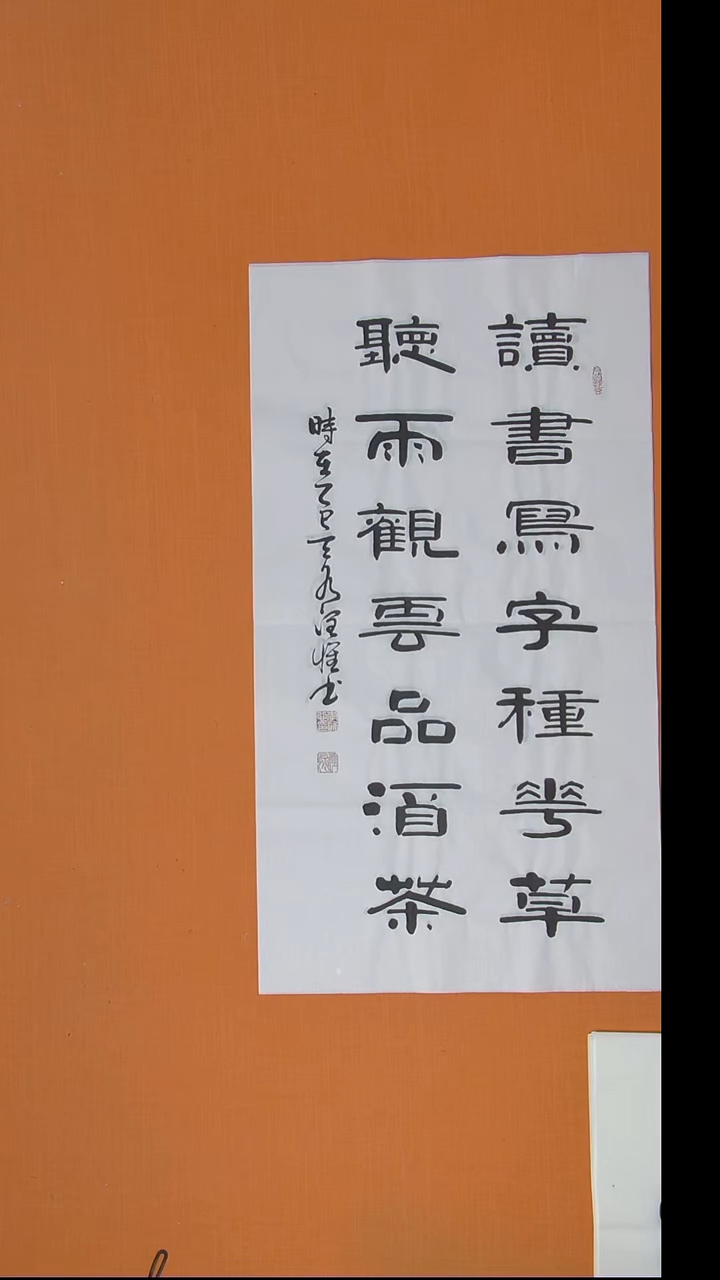 讀書寫字種花草
聽雨觀雲品酒茶
時在乙巳